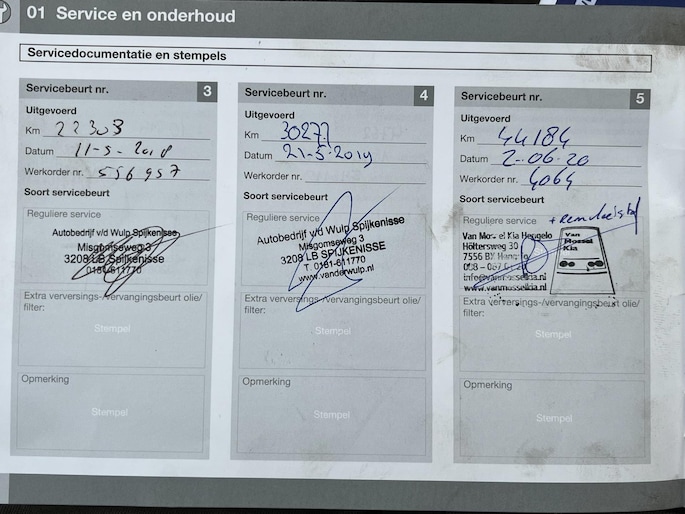 01 Service en onderhoud
Servicedocumentatie en stempels
Servicebeurt nr. 3
Uitgevoerd
Km 22303
Datum 11-5-2018
Werkorder nr. 556957
Soort servicebeurt
Reguliere service
Autobedrijf v/d Wulp Spijkenisse
Misgomseweg 3
3208 LB Spijkenisse
0181-611770
Extra verversings-/vervangingsbeurt olie/
filter:
Stempel
Opmerking
Stempel
Servicebeurt nr. 4
Uitgevoerd
Km 30277
Datum 21-5-2019
Werkorder nr.
Soort servicebeurt
Reguliere service
Autobedrijf v/d Wulp Spijkenisse
Misgomseweg 3
3208 LB SPIJKENISSE
T. 0181-611770
www.vanderwulp.nl
Extra verversings-/vervangingsbeurt olie/
filter:
Stempel
Opmerking
Stempel
Servicebeurt nr. 5
Uitgevoerd
Km 44184
Datum 2-06-20
Werkorder nr. 4064
Soort servicebeurt
Reguliere service + Remvloeistof
Van Mossel Kia Hengelo
Höltersweg 30
7556 BX Hengelo
info@vanmosselkia.nl
www.vanmosselkia.nl
Van
Mossel
Kia
Extra verversings-/vervangingsbeurt olie/
filter:
Stempel
Opmerking
Stempel